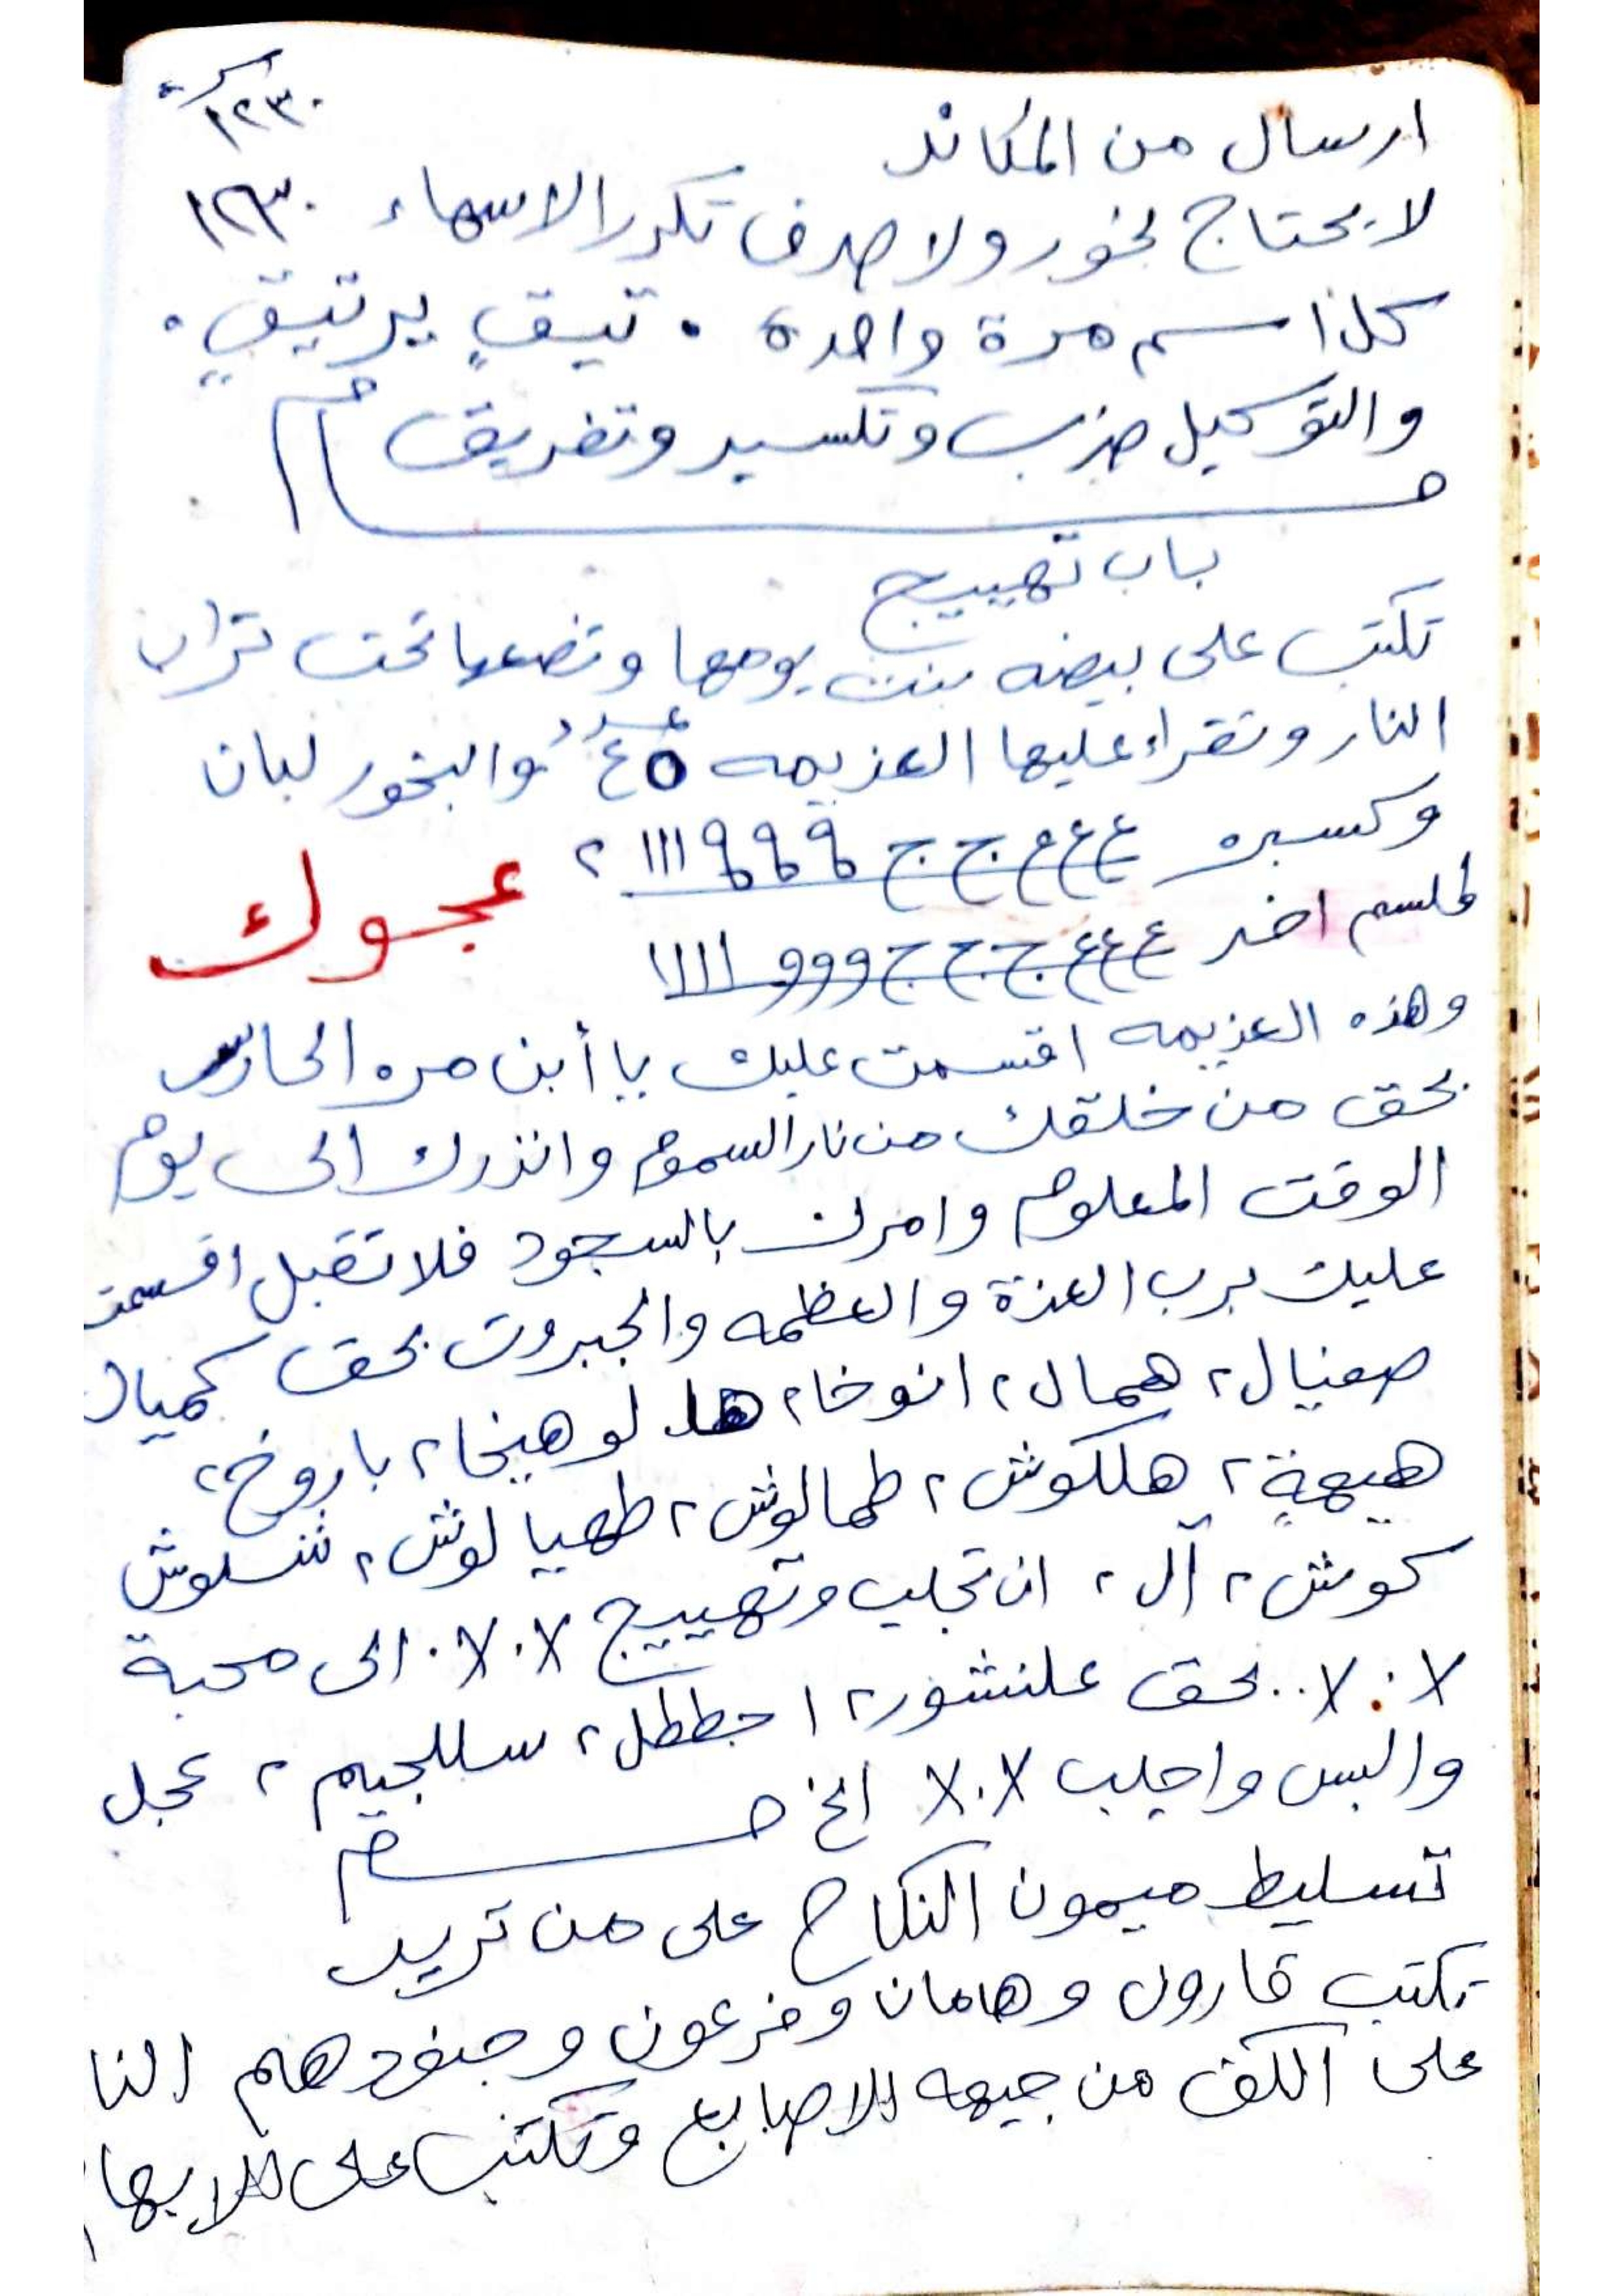 ١٢٣٠
ارسال من المكاند
لا يحتاج بخور ولا صرف تكرر الاسماء ١٢٣٠
كل اسم مرة واحده . تيقٍ برتيقٍ .
والتوكيل ضرب وتكسير وتفريق
باب تهييج
تكتب على بيضه بنت يومها وتضعها تحت تراب
النار وتقراء عليها العزيمه ٤٥ والبخور لبان
وكسبره ع ع ع ج ج ٩ ٩ ٩ ١١١ ٢
عجوك
طلسم اخر ع ع ع ج ج ج و و و ١١١١
وهذه العزيمه اقسمت عليك يا أبن مره الحارس
بحق من خلقك من نار السموم وانذرك الى يوم
الوقت المعلوم وامرك بالسجود فلا تقبل اقسمت
عليك برب العزة والعظمه والجبروت بحق كميال
صعيال ٢ همال ٢ انوخا ٢ هلا لوهيخا ٢ باروخ ٢
هيهةٍ ٢ هلكوش ٢ طمالوش ٢ طهيالوش ٢ شلوش
كوش ٢ آل ٢ ان تجلب وتهييج X.X. الى محبة
X.X.. بحق علنشور ٢ اجططل ٢ سللجيم ٢ عجل
والبس واجلب X.X الخ
تسليط ميمون النكاح على من تريد
تكتب قارون وهامان وفرعون وجنودهم النا
على الكف من جيهه للاصابع وتكتب على للابها